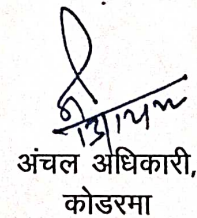 अंचल अधिकारी,
कोडरमा